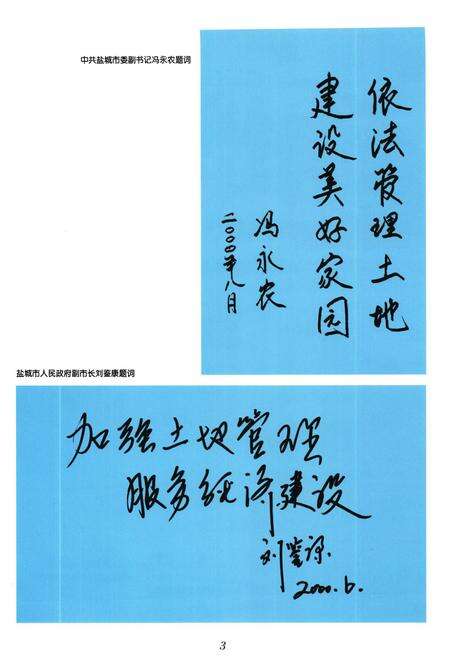 中共盐城市委副书记冯永农题词
依法管理土地
建设美好家园
冯永农
二〇〇〇年八月
盐城市人民政府副市长刘鉴康题词
加强土地管理
服务经济建设
刘鉴康
2000.6.
3